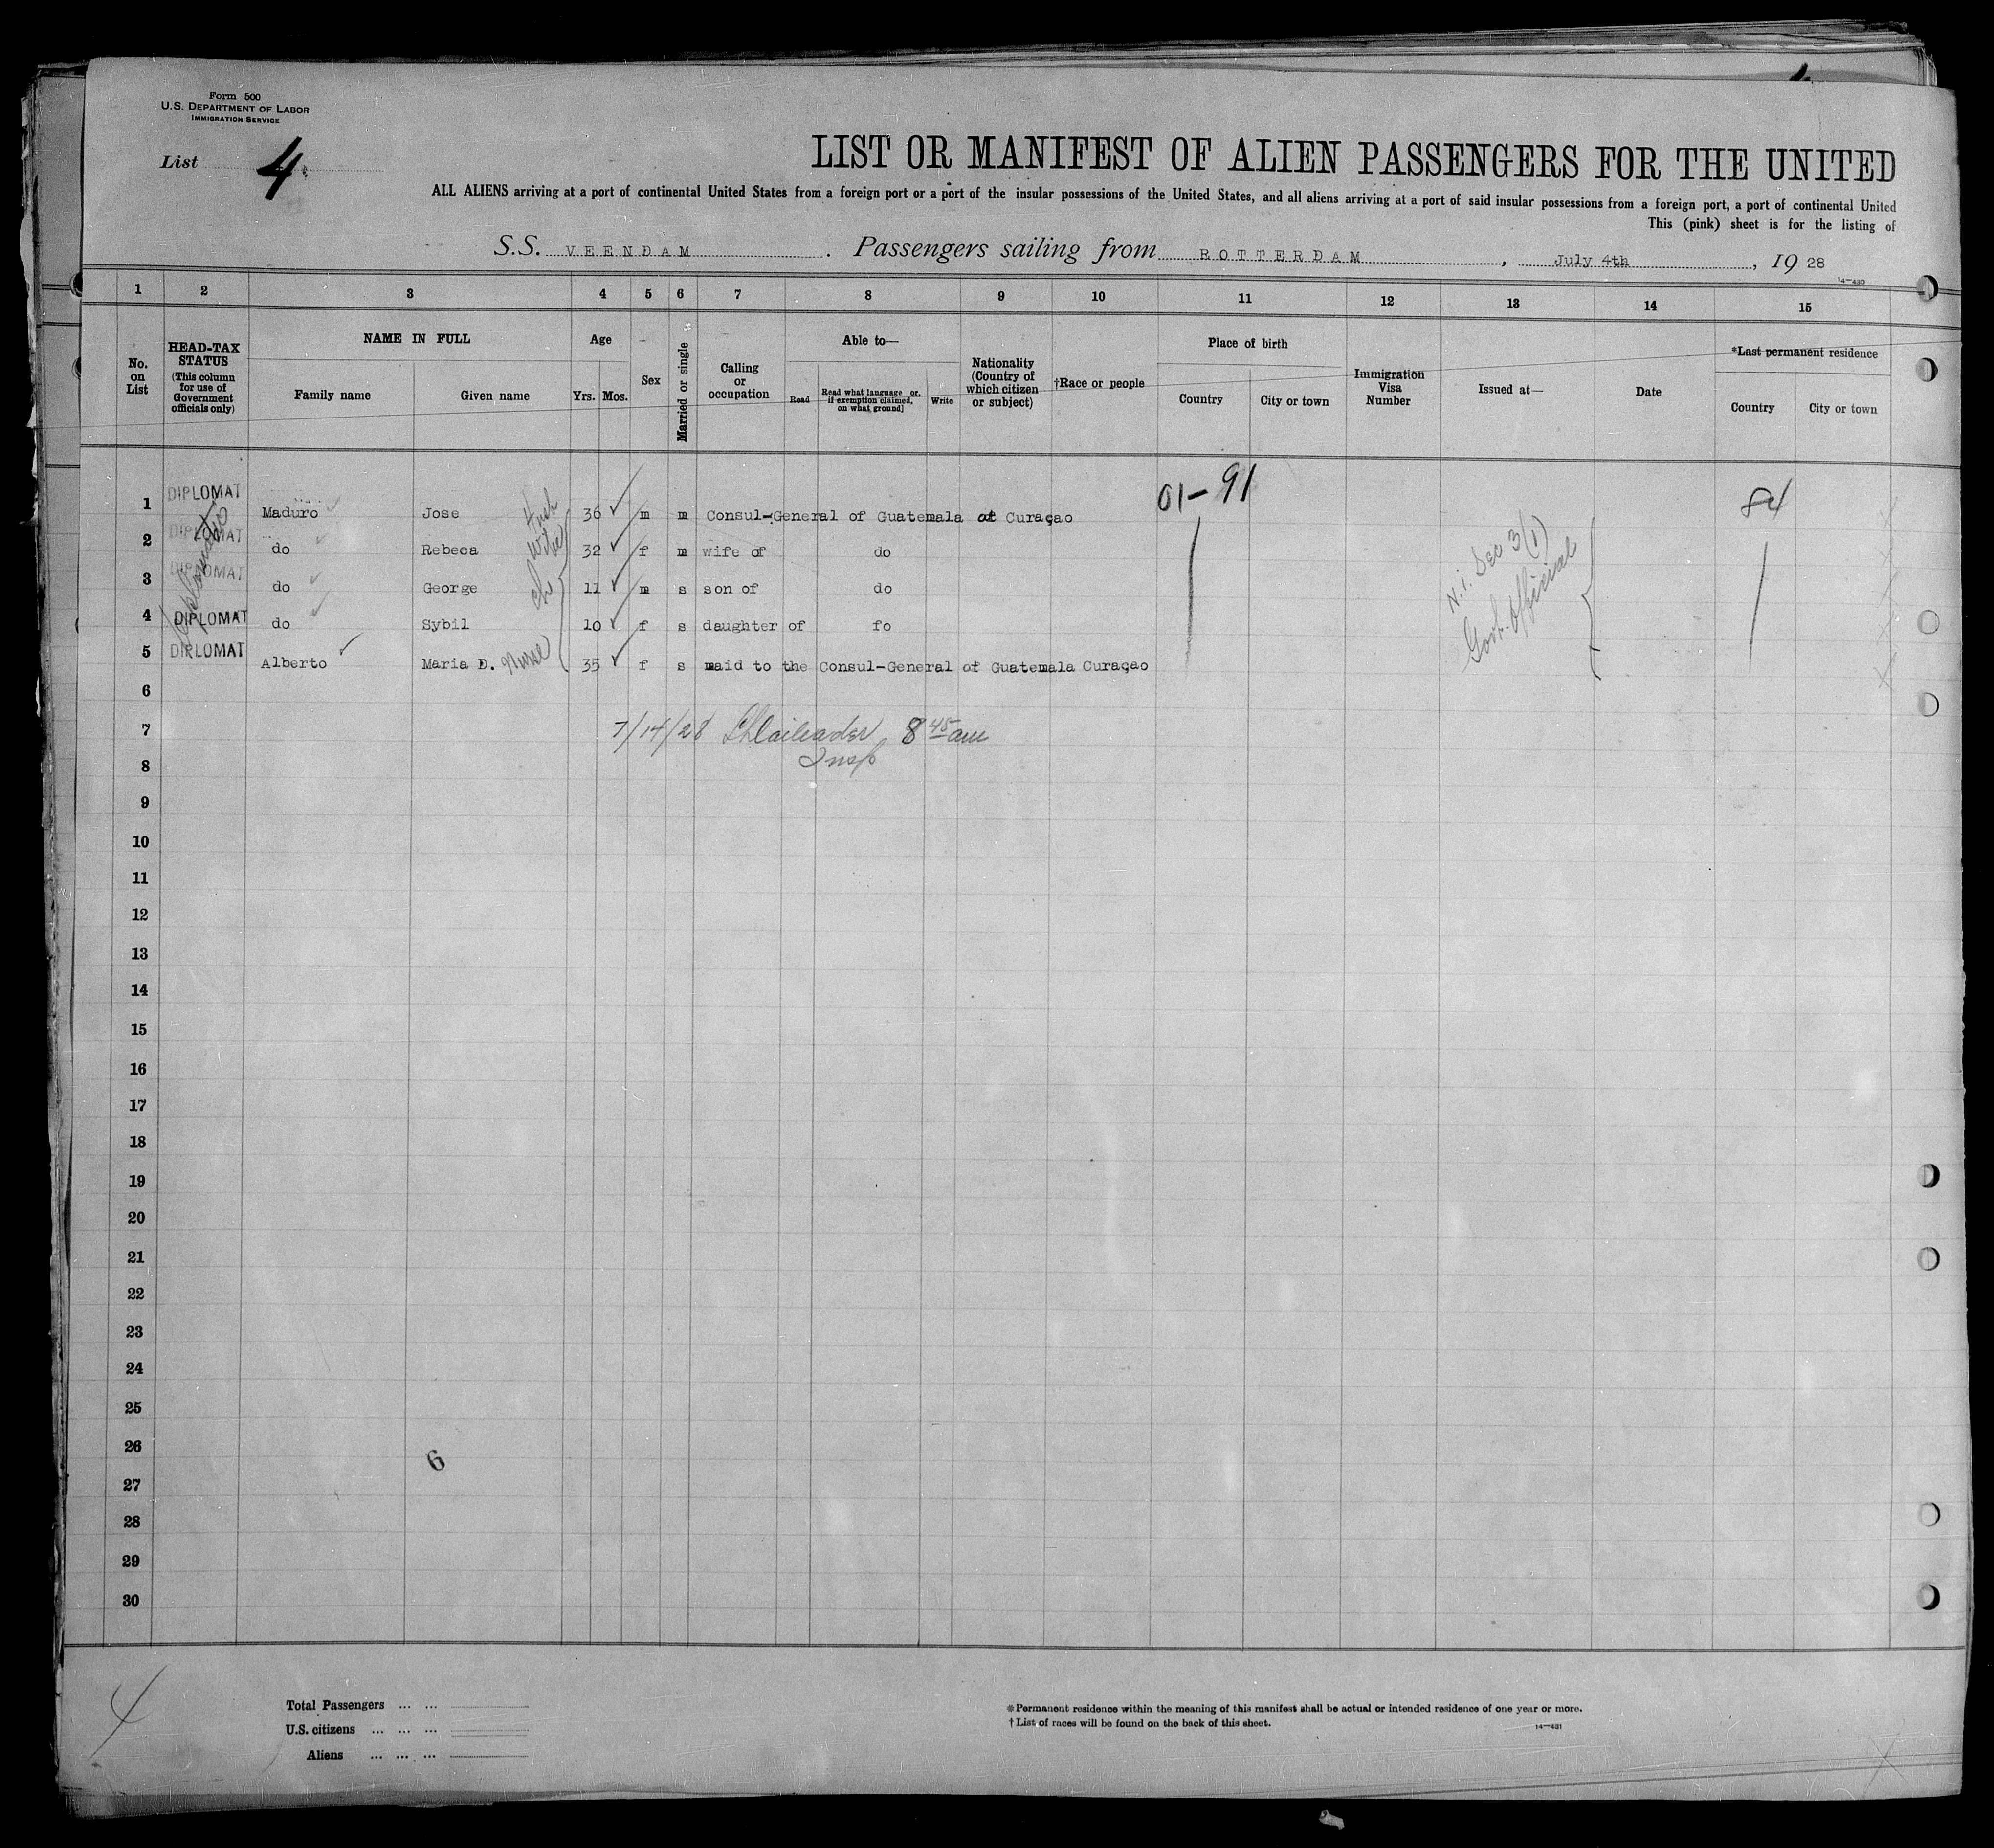 Form 500
U.S. DEPARTMENT OF LABOR
IMMIGRATION SERVICE
List 4
LIST OR MANIFEST OF ALIEN PASSENGERS FOR THE UNITED
ALL ALIENS arriving at a port of continental United States from a foreign port or a port of the insular possessions of the United States, and all aliens arriving at a port of said insular possessions from a foreign port, a port of continental United
This (pink) sheet is for the listing of
S.S. VEENDAM. Passengers sailing from ROTTERDAM, July 4th, 19 28
14—430
1 2 3 4 5 6 7 8 9 10 11 12 13 14 15
No. on List
HEAD-TAX STATUS (This column for use of Government officials only)
NAME IN FULL
Family name
Given name
Age
Yrs. Mos.
Sex
Married or single
Calling or occupation
Able to—
Read
Read what language or, if exemption claimed, on what ground]
Write
Nationality (Country of which citizen or subject)
†Race or people
Place of birth
Country
City or town
Immigration Visa Number
Issued at—
Date
*Last permanent residence
Country
City or town
01-91
84
1 DIPLOMAT Maduro Jose 36 m m Consul-General of Guatemala at Curaçao
2 DIPLOMAT do Rebeca Wife 32 f m wife of do
3 DIPLOMAT do George ch 11 m s son of do
4 DIPLOMAT do Sybil 10 f s daughter of fo
5 DIPLOMAT Alberto Maria D. Nurse 35 f s maid to the Consul-General of Guatemala Curaçao
N.I. Sec 3(1)
Govt. Official
6
7 7/14/28 8 45 am
Insp
8
9
10
11
12
13
14
15
16
17
18
19
20
21
22
23
24
25
26
6
27
28
29
30
4
Total Passengers ... ...
U.S. citizens ... ... ...
Aliens ... ... ...
* Permanent residence within the meaning of this manifest shall be actual or intended residence of one year or more.
† List of races will be found on the back of this sheet.
14—431